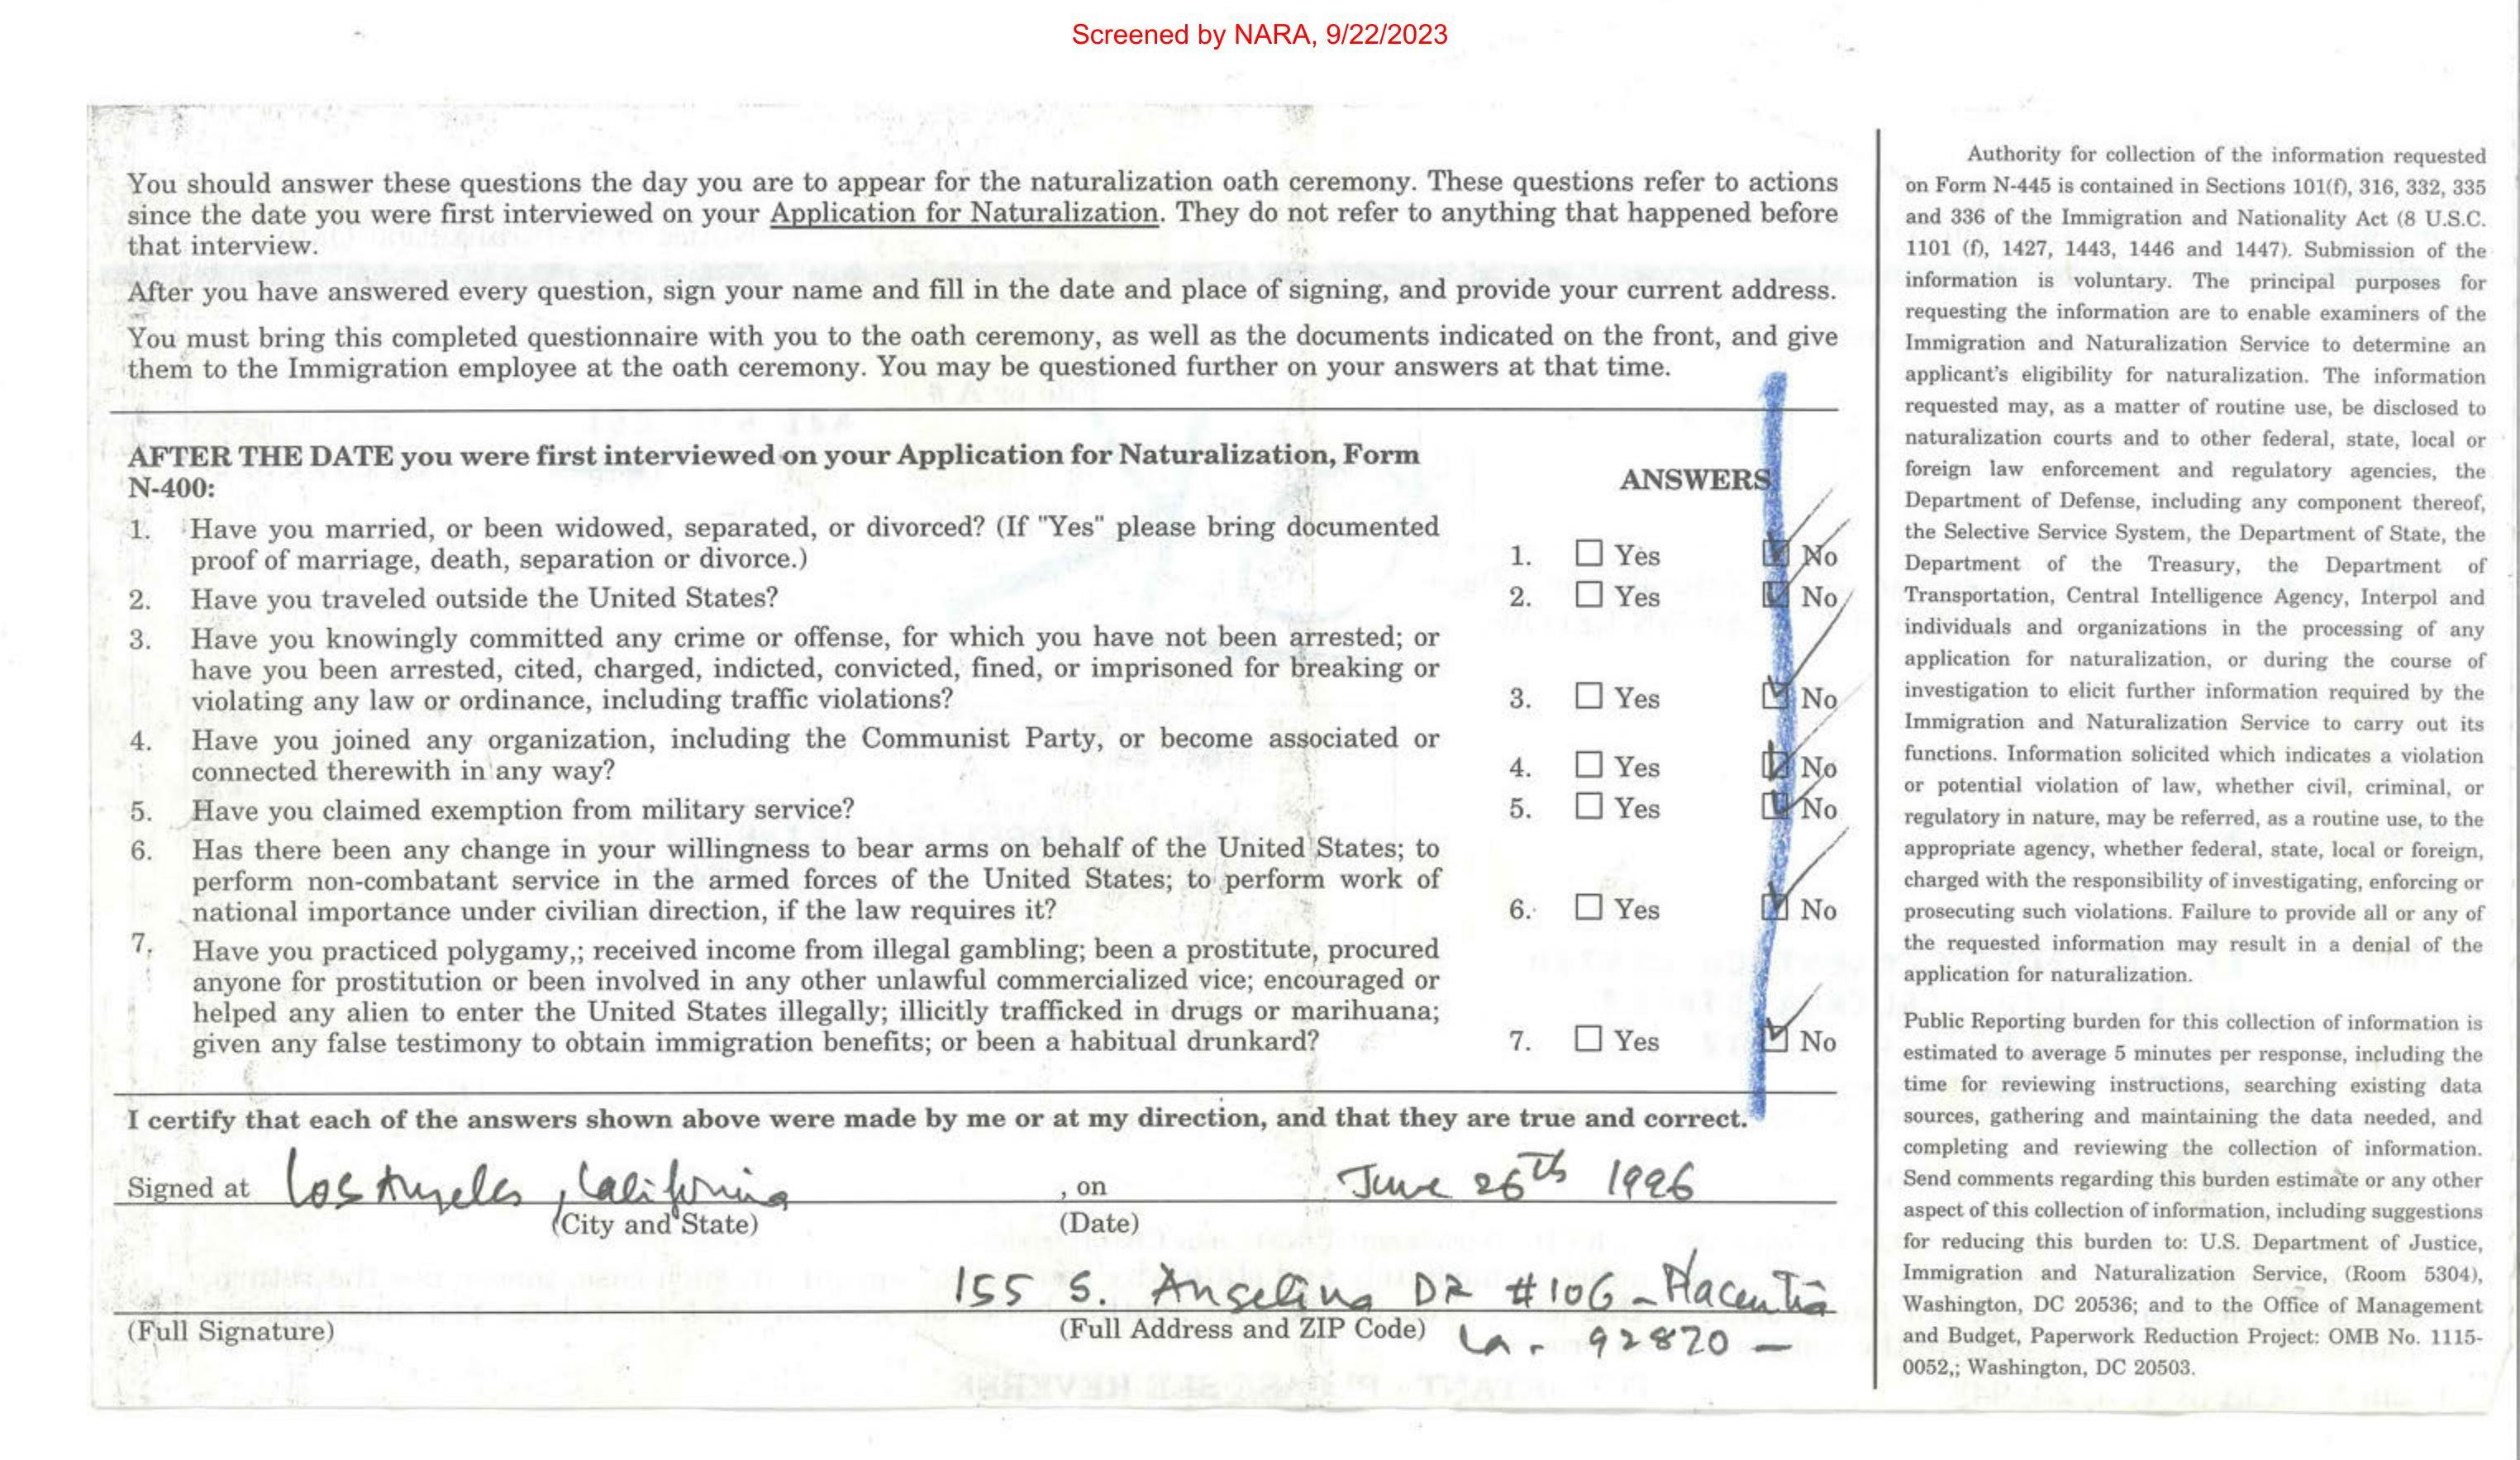 Screened by NARA, 9/22/2023
You should answer these questions the day you are to appear for the naturalization oath ceremony. These questions refer to actions
since the date you were first interviewed on your Application for Naturalization. They do not refer to anything that happened before
that interview.
After you have answered every question, sign your name and fill in the date and place of signing, and provide your current address.
You must bring this completed questionnaire with you to the oath ceremony, as well as the documents indicated on the front, and give
them to the Immigration employee at the oath ceremony. You may be questioned further on your answers at that time.
AFTER THE DATE you were first interviewed on your Application for Naturalization, Form
N-400:
ANSWERS
1. Have you married, or been widowed, separated, or divorced? (If "Yes" please bring documented
proof of marriage, death, separation or divorce.)
1. ☐ Yes ☑ No
2. Have you traveled outside the United States?
2. ☐ Yes ☑ No
3. Have you knowingly committed any crime or offense, for which you have not been arrested; or
have you been arrested, cited, charged, indicted, convicted, fined, or imprisoned for breaking or
violating any law or ordinance, including traffic violations?
3. ☐ Yes ☑ No
4. Have you joined any organization, including the Communist Party, or become associated or
connected therewith in any way?
4. ☐ Yes ☑ No
5. Have you claimed exemption from military service?
5. ☐ Yes ☑ No
6. Has there been any change in your willingness to bear arms on behalf of the United States; to
perform non-combatant service in the armed forces of the United States; to perform work of
national importance under civilian direction, if the law requires it?
6. ☐ Yes ☑ No
7. Have you practiced polygamy,; received income from illegal gambling; been a prostitute, procured
anyone for prostitution or been involved in any other unlawful commercialized vice; encouraged or
helped any alien to enter the United States illegally; illicitly trafficked in drugs or marihuana;
given any false testimony to obtain immigration benefits; or been a habitual drunkard?
7. ☐ Yes ☑ No
I certify that each of the answers shown above were made by me or at my direction, and that they are true and correct.
Signed at Los Angeles, California , on June 26th 1996
(City and State) (Date)
155 S. Angelina DR #106 - Placentia
(Full Signature) (Full Address and ZIP Code) Ca - 92870 -
Authority for collection of the information requested
on Form N-445 is contained in Sections 101(f), 316, 332, 335
and 336 of the Immigration and Nationality Act (8 U.S.C.
1101 (f), 1427, 1443, 1446 and 1447). Submission of the
information is voluntary. The principal purposes for
requesting the information are to enable examiners of the
Immigration and Naturalization Service to determine an
applicant's eligibility for naturalization. The information
requested may, as a matter of routine use, be disclosed to
naturalization courts and to other federal, state, local or
foreign law enforcement and regulatory agencies, the
Department of Defense, including any component thereof,
the Selective Service System, the Department of State, the
Department of the Treasury, the Department of
Transportation, Central Intelligence Agency, Interpol and
individuals and organizations in the processing of any
application for naturalization, or during the course of
investigation to elicit further information required by the
Immigration and Naturalization Service to carry out its
functions. Information solicited which indicates a violation
or potential violation of law, whether civil, criminal, or
regulatory in nature, may be referred, as a routine use, to the
appropriate agency, whether federal, state, local or foreign,
charged with the responsibility of investigating, enforcing or
prosecuting such violations. Failure to provide all or any of
the requested information may result in a denial of the
application for naturalization.
Public Reporting burden for this collection of information is
estimated to average 5 minutes per response, including the
time for reviewing instructions, searching existing data
sources, gathering and maintaining the data needed, and
completing and reviewing the collection of information.
Send comments regarding this burden estimate or any other
aspect of this collection of information, including suggestions
for reducing this burden to: U.S. Department of Justice,
Immigration and Naturalization Service, (Room 5304),
Washington, DC 20536; and to the Office of Management
and Budget, Paperwork Reduction Project: OMB No. 1115-
0052,; Washington, DC 20503.